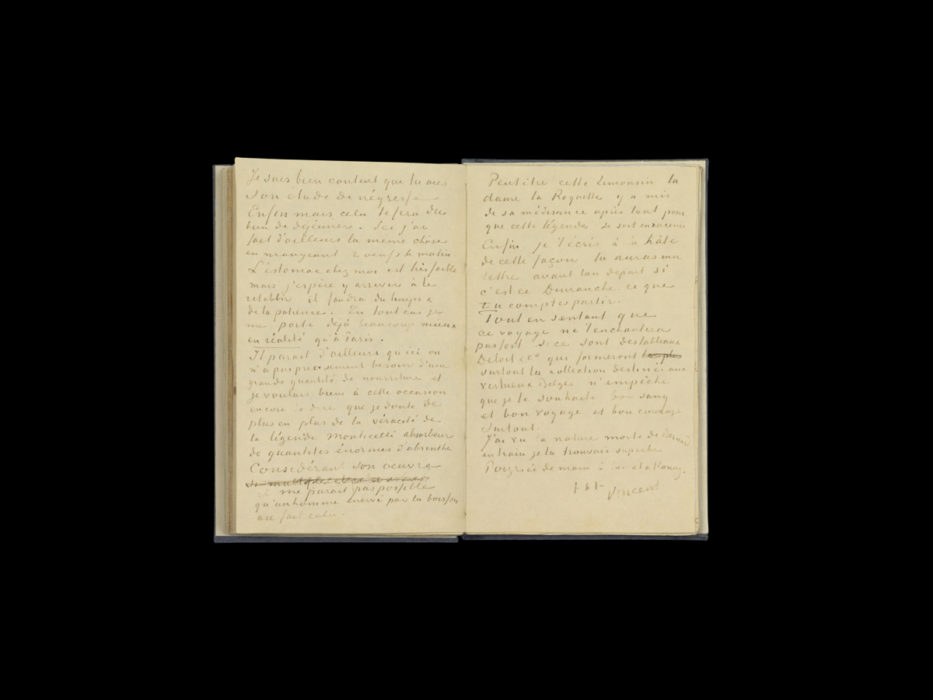 Je suis bien content que tu aies
son étude de négresse.
Enfin mais cela te fera de
bien de déjeuner. Ici j'ai
fait d'ailleurs la même chose
en mangeant 2 œufs le matin
L'estomac chez moi est très faible
mais j'espère y arriver à le
retablir il faudra du temps &
de la patience. En tout cas je
me porte déjà beaucoup mieux
en réalité qu'à Paris.
Il parait d'ailleurs qu'ici on
n'a pas precisement besoin d'une
grande quantité de nourriture et
je voulais bien à cette occasion
encore te dire que je doute de
plus en plus de la véracité de
la légende Monticelli absorbeur
de quantités énormes d'absinthe
Considérant son œuvre
il me parait pas possible
qu'un homme énervé par la boisson
aie fait cela.
Peut être cette Limousin la
dame la Roquette y a mis
de sa médisance après tout pour
que cette légende se soit enracinée
Enfin je t'écris à la hâte
de cette façon tu auras ma
lettre avant ton départ si
c'est ce Dimanche ce que
tu comptes partir.
Tout en sentant que
ce voyage ne t'enchantera
pas fort si ce sont des tableaux
Deloit & Co qui formeront
surtout la collection destinée aux
vertueux Belges n'empêche
que je te souhaite bon sang
et bon voyage et bon courage
surtout.
J'ai vu la nature morte de Bernard
en train je la trouvais superbe
Poignée de main à toi et à Koning.
t. à t.
Vincent